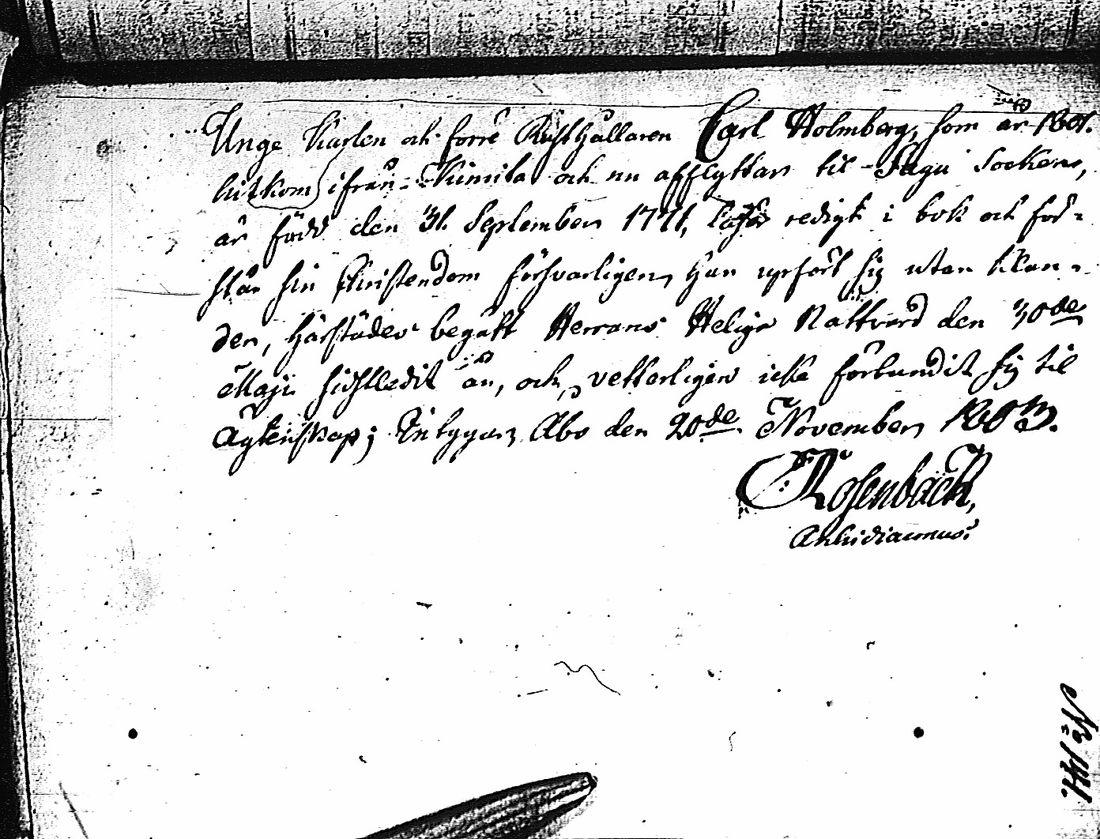 Unge Karlen och förre Rusthållaren Carl Holmberg, som år 1801.
hitkom ifrån Kimito och nu afflyttar til Sagu Socken,
är född den 31. September 1771, läser redigt i bok och för-
står sin Christendom försvarligen, Han upfört sig utan klan-
der, härstädes begått Herrans Helige Nattvard den 30de
Maji sidstledit år, och, vetterligen icke förbundit sig til
Ägtenskap; Intygar, Åbo den 20de November 1803.
C Rosenback,
Archidiaconus.
No 141.